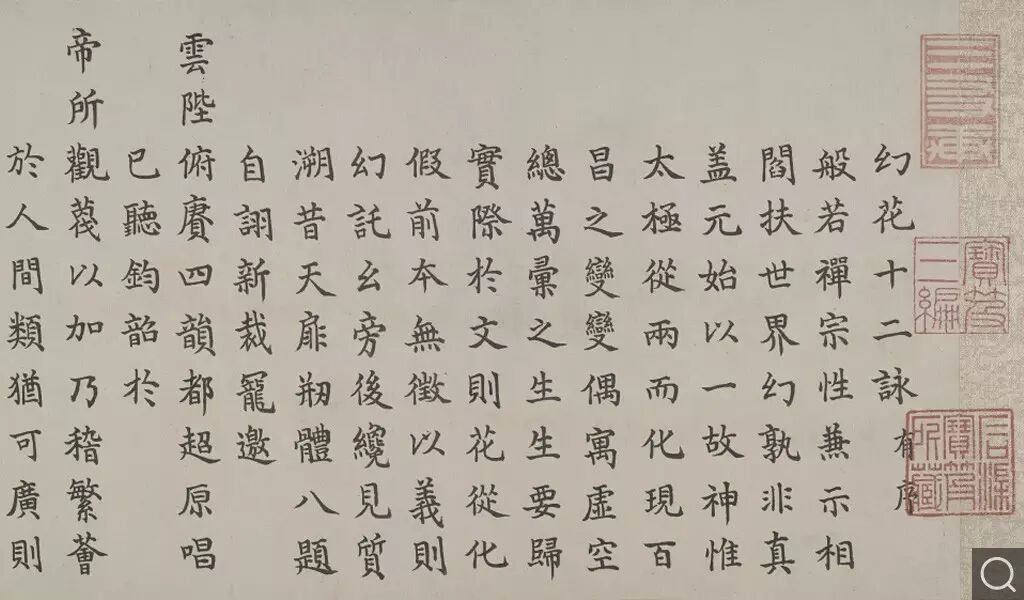 幻花十二詠 有序
般若禪宗性兼示相
閻扶世界幻孰非真
盖元始以一故神惟
太極從兩而化現百
昌之變變偶寓虛空
總萬彙之生生要歸
實際於文則花從化
假前本無徵以義則
幻託幺旁後纔見質
溯昔天扉剏體八題
自詡新裁寵邀
雲陛俯賡四韻都超原唱
已聽鈞韶於
帝所觀蔑以加乃稽繁薈
於人間類猶可廣則
寶笈三編
石渠寶笈所藏